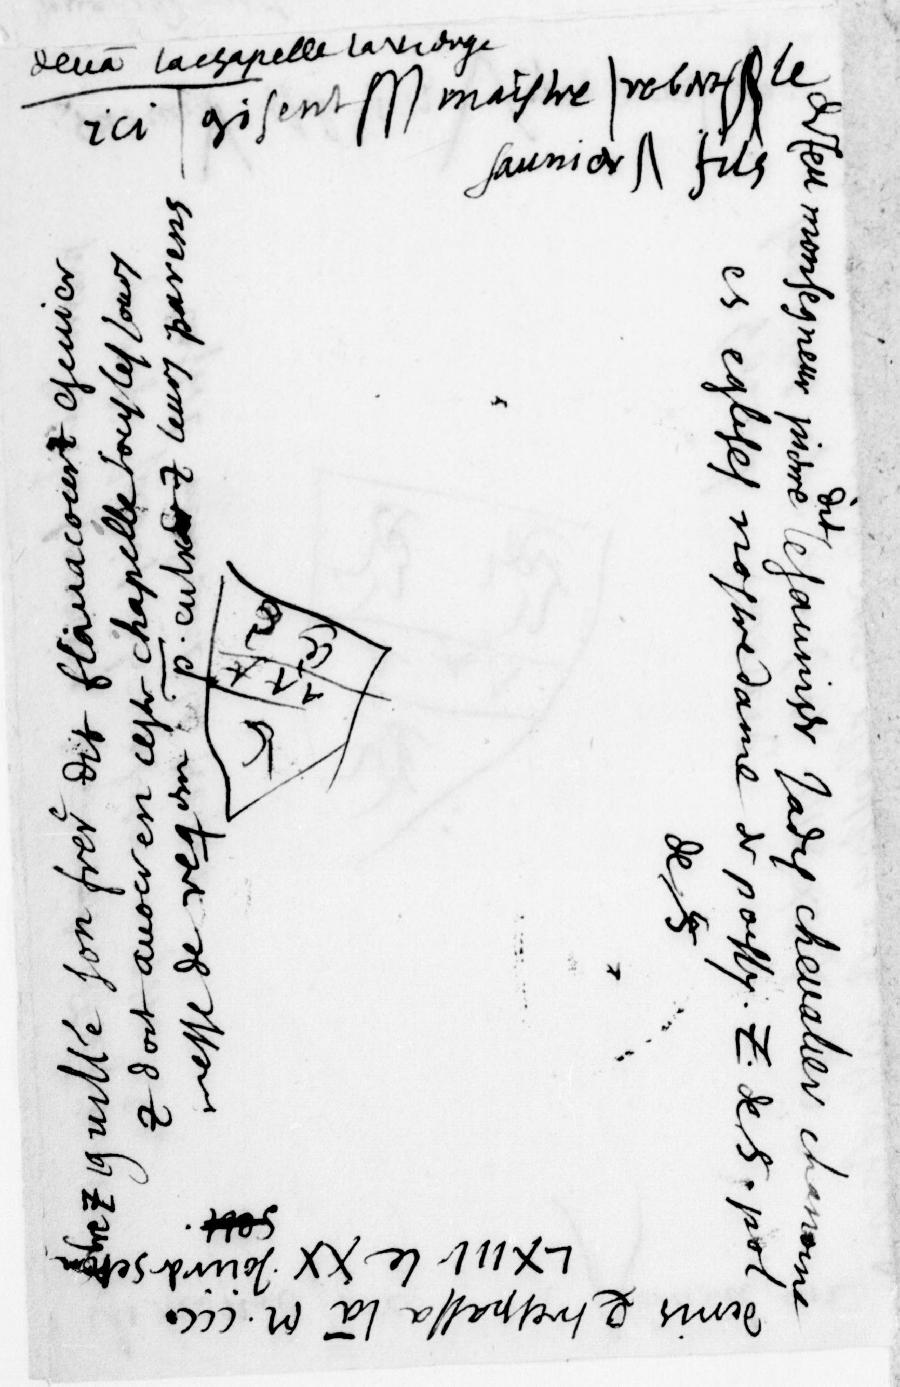 deuā la chapelle la vierge
ici gisent maistre robert le
saunier fils
de feu monsegneur pierre dit le saunier Jadis chevalier chanoine
es eglises nostredame de poissy. Z. de S. pol
de S
denis Z trespassa lā M. ccc
LXIII le XX jour de
Z guille son frer dit flauacourt
Z doit auoer en ceste chapelle tous les jours
messe de requi p. eulx Z leurs parens